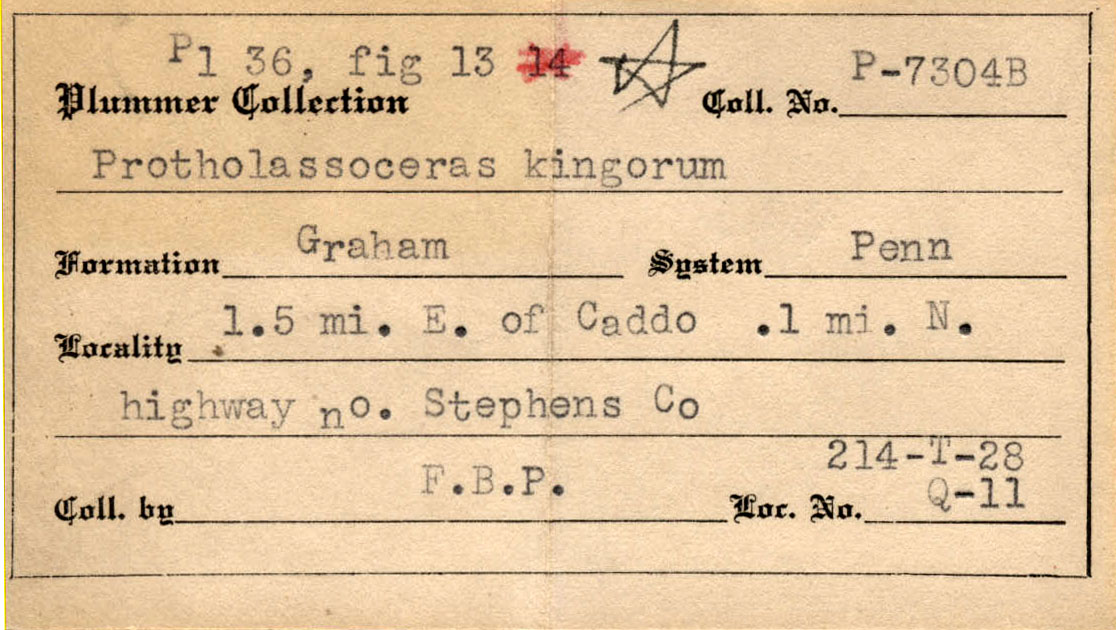 Pl 36, fig 13 14
P-7304B
Plummer Collection Coll. No.
Protholassoceras kingorum
Formation Graham System Penn
Locality 1.5 mi. E. of Caddo .1 mi. N.
highway no. Stephens Co
214-T-28
Coll. by F.B.P. Loc. No. Q-11